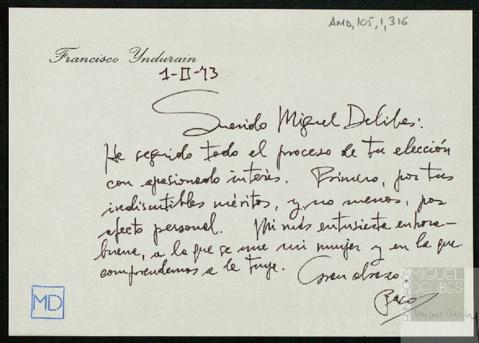 AMD, 105, 1, 316
Francisco Yndurain
1-II-73
Querido Miguel Delibes:
He seguido todo el proceso de tu elección
con apasionado interés. Primero, por tus
indiscutibles méritos, y, no menos, por
afecto personal. Mi más entusiasta enhora-
buena, a la que se une mi mujer y en la que
comprendemos a la tuya.
Gran abrazo:
Paco
MD
MIGUEL
DELIBES